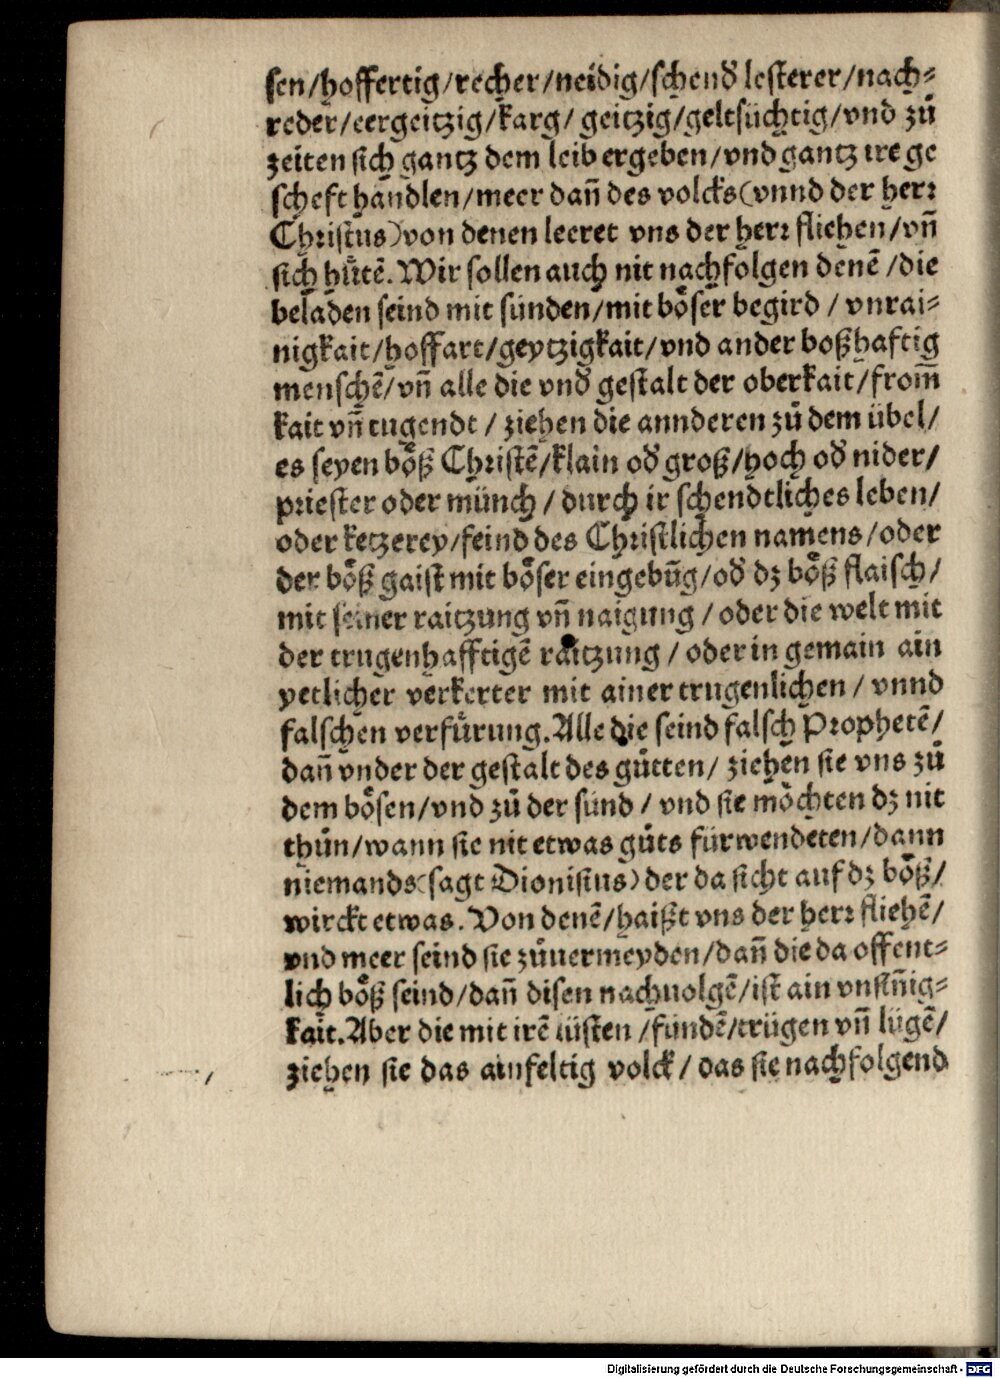 sen/hoffertig/recher/neidig/schend lesterer/nach⸗
reder/eergeitzig/karg/ geitzig/geltsüchtig/vnd zů
zeiten sich gantz dem leib ergeben/vnd gantz ire ge
scheft handlen/meer dañ des volcks(vnnd der herꝛ
Chꝛistus)von denen leeret vns der herꝛ fliehen/vñ
sich hütẽ. Wir sollen auch nit nachfolgen denẽ /die
beladen seind mit sünden/mit böser begird / vnrai⸗
nigkait/hoffart/geytzigkait/vnd ander boßhaftig
menschẽ/vñ alle die vnd gestalt der oberkait/from̃
kait vñ tugendt / ziehen die annderen zů dem übel/
es seyen böß Chꝛistẽ/klain od groß/hoch od nider/
pꝛiester oder münch / durch ir schendtliches leben/
oder ketzerey/feind des Chꝛistlichen namens/oder
der böß gaist mit böser eingebũg/od dz böß flaisch/
mit seiner raitzung vñ naigung / oder die welt mit
der trugenhafftigẽ raitzung / oder in gemain ain
yetlicher verkerter mit ainer trugenlichen / vnnd
falschen verfürung. Alle die seind falsch Pꝛophetẽ/
dañ vnder der gestalt des gůtten/ ziehen sie vns zů
dem bösen/vnd zů der sünd / vnd sie möchten dz nit
thůn/wann sie nit etwas gůts fürwendeten/dann
niemands(sagt Dionisius)der da sicht auf dz böß/
wirckt etwas. Von denẽ/haißt vns der herꝛ fliehẽ/
vnd meer seind sie zůuermeyden/dañ die da offent⸗
lich böß seind/dañ disen nachuolgẽ/ist ain vnsiñig⸗
kait. Aber die mit irẽ lüsten /fündẽ/trügen vñ lügẽ/
ziehen sie das ainfeltig volck / das sie nachfolgend
Digitalisierung gefördert durch die Deutsche Forschungsgemeinschaft - DFG